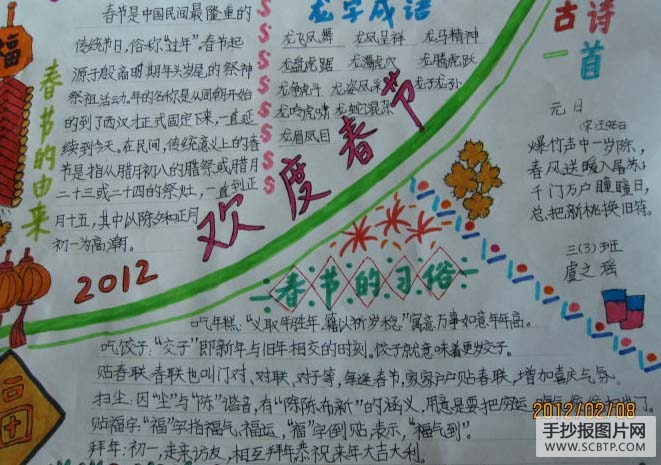 福
春节的由来
春节是中国民间最隆重的
传统节日,俗称"过年"。春节起
源于殷商时期年头岁尾的祭神
祭祖活动。年的名称是从周朝开始
的到了西汉才正式固定下来,一直延
续到今天。在民间,传统意义上的春
节是指从腊月初八的腊祭或腊月
二十三或二十四的祭灶,一直到正
月十五,其中以除夕和正月
初一为高潮。
2012
龙字成语
龙飞凤舞 龙凤呈祥 龙马精神
龙盘虎踞 龙潭虎穴 龙腾虎跃
龙争虎斗 龙姿凤采 龙子龙孙
龙吟虎啸 龙蛇混杂
龙眉凤目
欢度春节
古诗一首
元日
爆竹声中一岁除,
春风送暖入屠苏;
千门万户曈曈日,
总把新桃换旧符。
三(3)班
虞之瑶
春节的习俗
吃年糕:"义取年胜年,籍以祈岁稔"寓意万事如意年年高。
吃饺子:"交子"即新年与旧年相交的时刻。饺子就意味着更岁交子。
贴春联:春联也叫门对、对联、对子等,每逢春节,家家户户贴春联,增加喜庆气氛。
扫尘:因"尘"与"陈"谐音,有"除陈布新"的涵义,用意是要把穷运
贴福字:"福"字指福气、福运,"福"字倒贴,表示,"福气到"。
拜年:初一,走亲访友,相互拜年恭祝来年大吉大利。
福
2012/02/08
手抄报图片网
WWW.SCBTP.COM